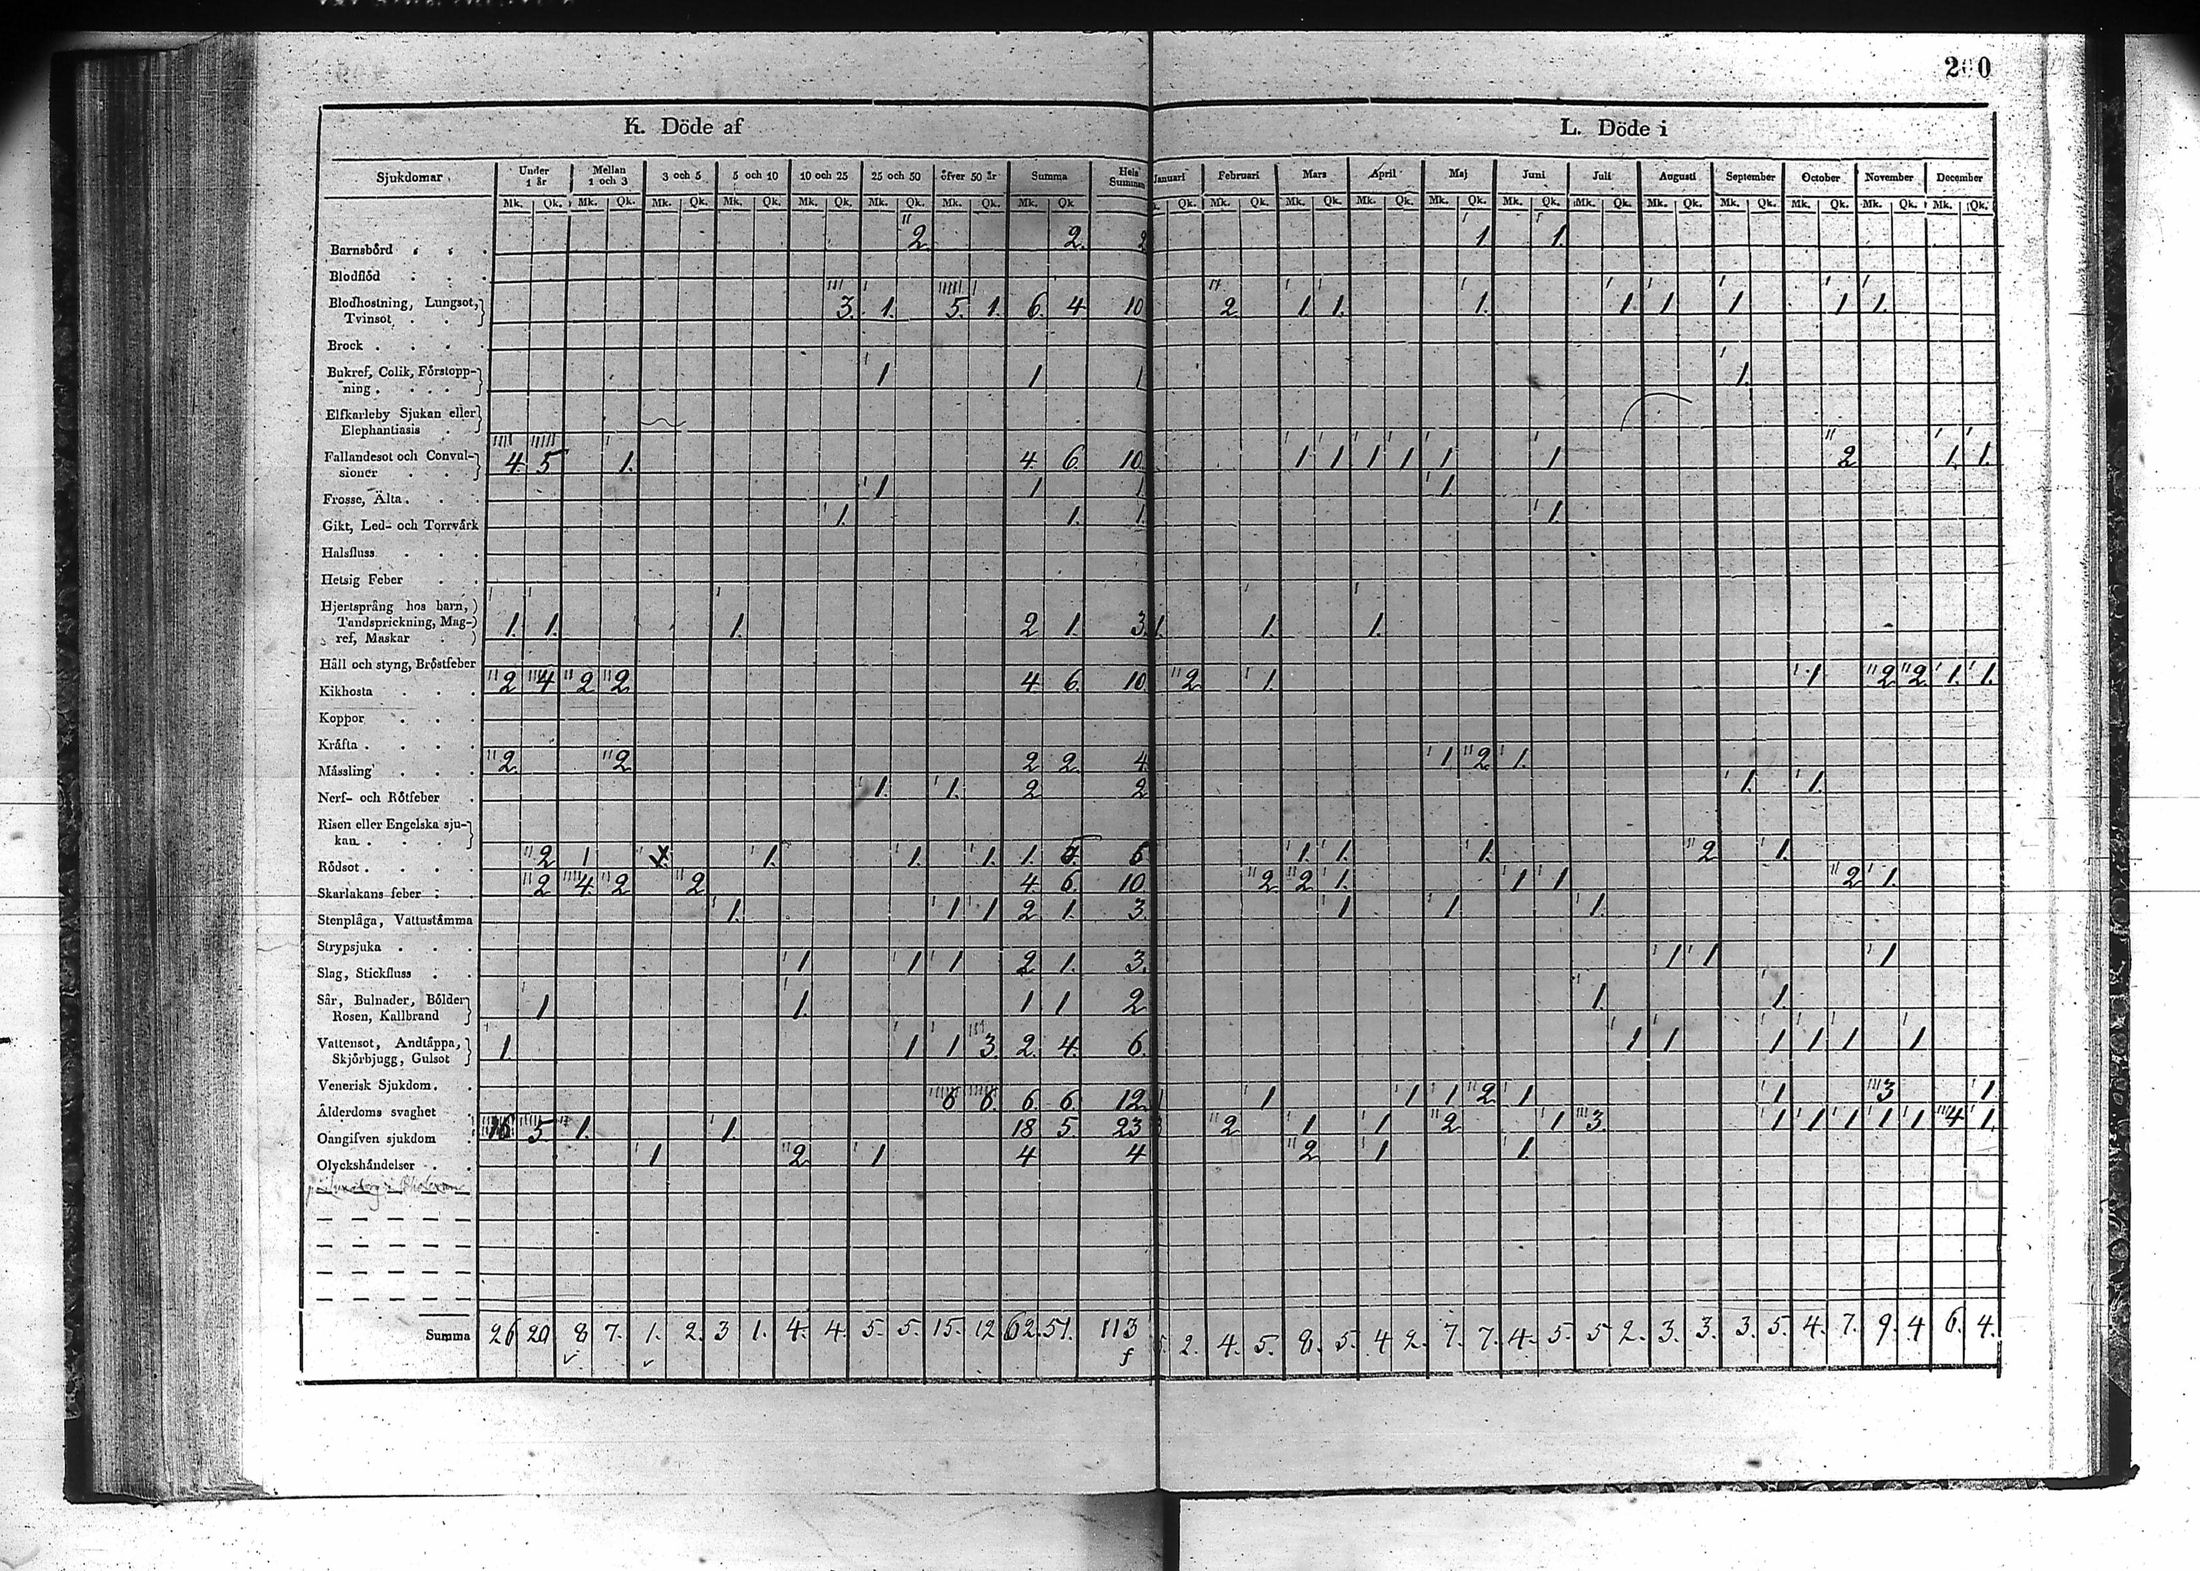 200
K. Döde af
L. Döde i
Sjukdomar Under 1 år Mellan 1 och 3 3 och 5 5 och 10 10 och 25 25 och 50 öfver 50 år Summa Hela Summan Januari Februari Mars April Maj Juni Juli Augusti September October November December
Mk. Qk. Mk. Qk. Mk. Qk. Mk. Qk. Mk. Qk. Mk. Qk. Mk. Qk. Mk. Qk. Qk. Mk. Qk. Mk. Qk. Mk. Qk. Mk. Qk. Mk. Qk. Mk. Qk. Mk. Qk. Mk. Qk. Mk. Qk. Mk. Qk. Mk. Qk.
Barnsbörd 2 2. 2 1 1.
Blodflöd
Blodhostning, Lungsot,
Tvinsot 3. 1. 5. 1. 6. 4 10 2 1 1. 1. 1 1 1 1 1.
Brock
Bukref, Colik, Förstopp-
ning 1 1 1 1.
Elfkarleby Sjukan eller
Elephantiasis
Fallandesot och Convul-
sioner 4. 5 1. 4. 6. 10. 1 1 1 1 1 1 2 1. 1.
Frosse, Älta 1 1 1. 1
Gikt, Led- och Torrvärk 1. 1. 1. 1.
Halsfluss
Hetsig Feber
Hjertsprång hos barn,
Tandsprickning, Mag-
ref, Maskar 1. 1. 1. 2 1. 3. 1. 1. 1.
Håll och styng, Bröstfeber
Kikhosta 2 4 2 2 4 6. 10 2 1. 1 2 2 1. 1.
Koppor
Kräfta
Mässling 2. 2 2 2. 4 1 2 1.
Nerf- och Rötfeber 1. 1. 2 2 1. 1.
Risen eller Engelska sju-
kan
Rödsot 2 1 1. 1. 1. 1. 5. 6 1. 1. 1. 2 1.
Skarlakans feber 2 4. 2 2 4. 6. 10 2 2 1. 1 1 2 1.
Stenplåga, Vattustämma 1. 1 1 2 1. 3. 1 1 1.
Strypsjuka
Slag, Stickfluss 1 1 1 2 1. 3. 1 1 1
Sår, Bulnader, Bölder
Rosen, Kallbrand 1 1. 1 1 2 1. 1.
Vattensot, Andtäppa,
Skjörbjugg, Gulsot 1. 1 1 3. 2. 4. 6. 1 1 1 1 1 1
Venerisk Sjukdom
Ålderdoms svaghet 6 6. 6. 6. 12. 1 1 1 1 2 1 1 3 1
Oangifven sjukdom 16 5 1. 1. 18 5. 23 3 2 1 1 2 1 3. 1 1 1 1 1 4 1.
Olyckshändelser 1 2 1 4 4 2 1 1
Summa 26 20 8 7. 1. 2. 3 1. 4. 4. 5. 5. 15. 12 62. 51. 113 2. 4. 5. 8. 5. 4 2. 7. 7. 4. 5. 5 2. 3. 3. 3. 5. 4. 7. 9. 4 6. 4.